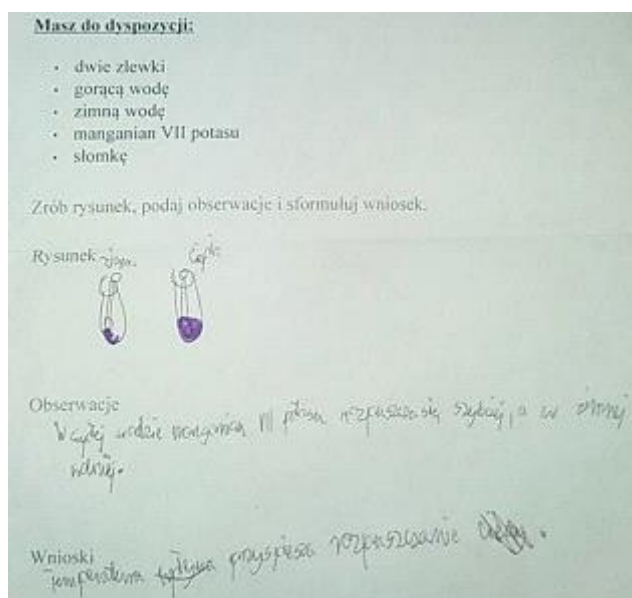 Masz do dyspozycji:
• dwie zlewki
• gorącą wodę
• zimną wodę
• manganian VII potasu
• słomkę
Zrób rysunek, podaj obserwacje i sformułuj wniosek.
Rysunek
Obserwacje
W ciepłej wodzie manganian VII potasu rozpuszcza się szybciej, a w zimnej
wolniej.
Wnioski
Temperatura przyspiesza rozpuszczanie